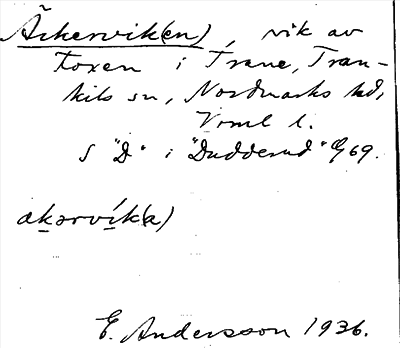 Åskervik(en), vik av
Foxen i Trane, Tran-
kils sn, Nordmarks hd,
Vrml l.
S "D" i "Dudderud" 69.
akərvik(a)
E. Andersson 1936.